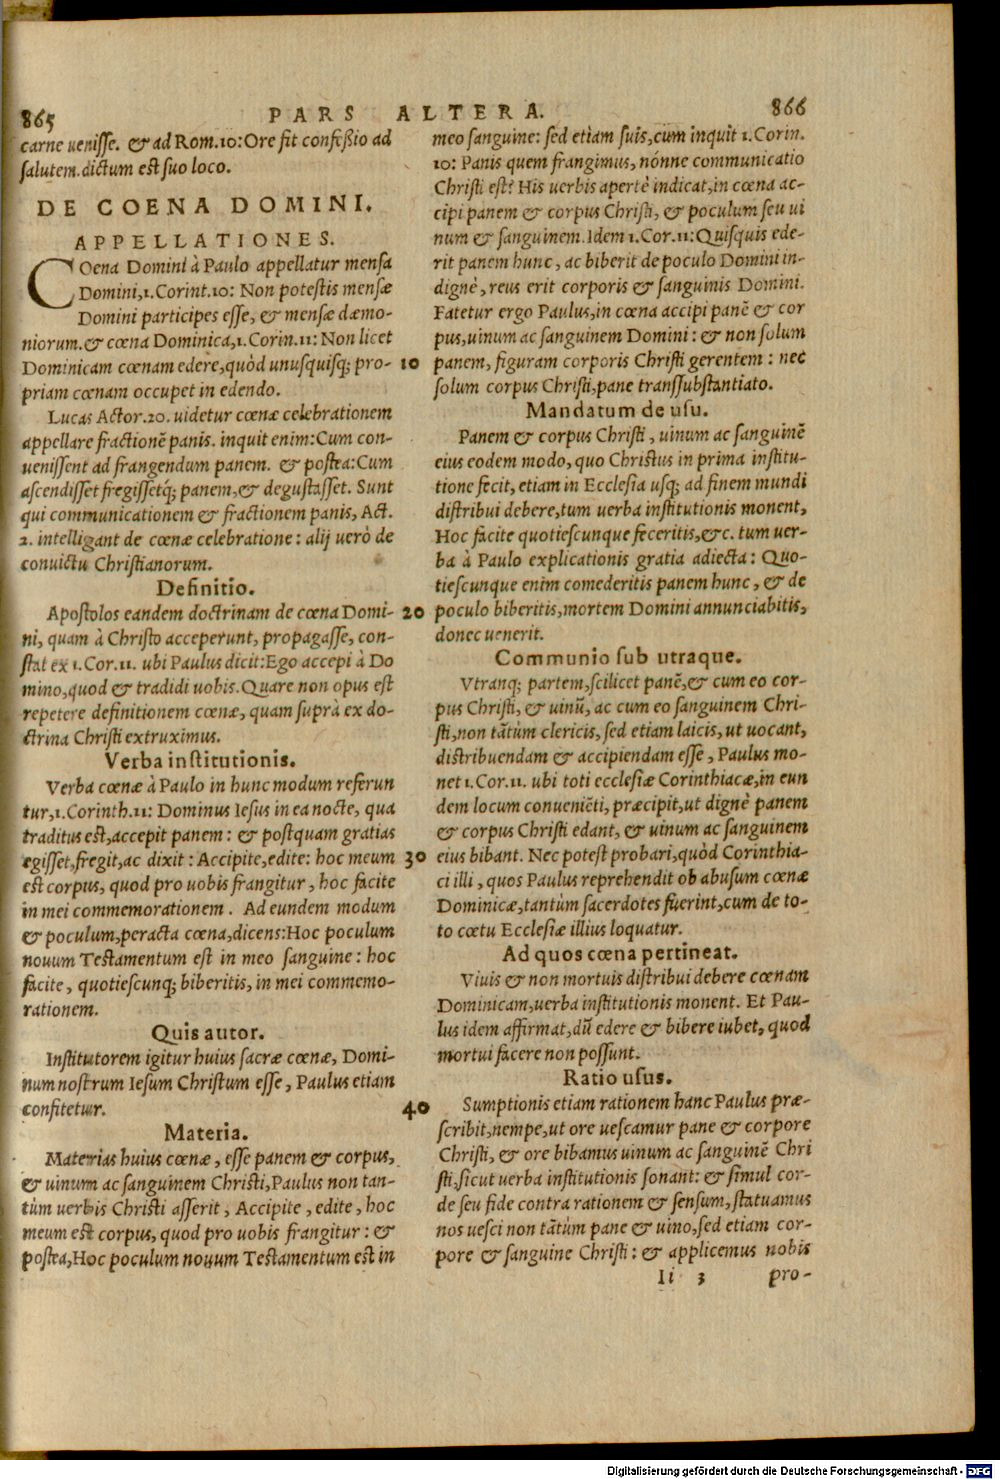 865 PARS ALTERA. 866
carne uenisse. & ad Rom. 10: Ore fit confeßio ad
salutem. dictum est suo loco.
DE COENA DOMINI.
APPELLATIONES.
COena Domini à Paulo appellatur mensa
Domini, 1. Corint. 10: Non potestis mensæ
Domini participes esse, & mensæ dæmo-
niorum. & cœna Dominica, 1. Corin. 11: Non licet
Dominicam cœnam edere, quòd unusquisq; pro-
priam cœnam occupet in edendo.
Lucas Actor. 20. uidetur cœnæ celebrationem
appellare fractionē panis. inquit enim: Cum con-
uenissent ad frangendum panem. & postea: Cum
ascendisset fregissetq́; panem, & degustasset. Sunt
qui communicationem & fractionem panis, Act.
2. intelligant de cœnæ celebratione: alij uerò de
conuictu Christianorum.
Definitio.
Apostolos eandem doctrinam de cœna Domi-
ni, quam à Christo acceperunt, propagasse, con-
stat ex 1. Cor. 11. ubi Paulus dicit: Ego accepi à Do
mino, quod & tradidi uobis. Quare non opus est
repetere definitionem cœnæ, quam suprà ex do-
ctrina Christi extruximus.
Verba institutionis.
Verba cœnæ à Paulo in hunc modum referun
tur, 1. Corinth. 11: Dominus Iesus in ea nocte, qua
traditus est, accepit panem: & postquam gratias
egisset, fregit, ac dixit: Accipite, edite: hoc meum
est corpus, quod pro uobis frangitur, hoc facite
in mei commemorationem. Ad eundem modum
& poculum, peracta cœna, dicens: Hoc poculum
nouum Testamentum est in meo sanguine: hoc
facite, quotiescunq; biberitis, in mei commemo-
rationem.
Quis autor.
Institutorem igitur huius sacræ cœnæ, Domi-
num nostrum Iesum Christum esse, Paulus etiam
confitetur.
Materia.
Materias huius cœnæ, esse panem & corpus,
& uinum ac sanguinem Christi, Paulus non tan-
tùm uerbis Christi asserit, Accipite, edite, hoc
meum est corpus, quod pro uobis frangitur: &
postea, Hoc poculum nouum Testamentum est in
10
20
30
40
meo sanguine: sed etiam suis, cum inquit 1. Corin.
10: Panis quem frangimus, nónne communicatio
Christi est? His uerbis apertè indicat, in cœna ac-
cipi panem & corpus Christi, & poculum seu ui
num & sanguinem. Idem 1. Cor. 11: Quisquis ede-
rit panem hunc, ac biberit de poculo Domini in-
dignè, reus erit corporis & sanguinis Domini.
Fatetur ergo Paulus, in cœna accipi panē & cor
pus, uinum ac sanguinem Domini: & non solum
panem, figuram corporis Christi gerentem: nec
solum corpus Christi, pane transsubstantiato.
Mandatum de usu.
Panem & corpus Christi, uinum ac sanguinē
eius eodem modo, quo Christus in prima institu-
tione fecit, etiam in Ecclesia usq; ad finem mundi
distribui debere, tum uerba institutionis monent,
Hoc facite quotiescunque feceritis, &c. tum uer-
ba à Paulo explicationis gratia adiecta: Quo-
tiescunque enim comederitis panem hunc, & de
poculo biberitis, mortem Domini annunciabitis,
donec uenerit.
Communio sub utraque.
Vtranq; partem, scilicet panē, & cum eo cor-
pus Christi, & uinū, ac cum eo sanguinem Chri-
sti, non tātùm clericis, sed etiam laicis, ut uocant,
distribuendam & accipiendam esse, Paulus mo-
net 1. Cor. 11. ubi toti ecclesiæ Corinthiacæ, in eun
dem locum conueniēti, præcipit, ut dignè panem
& corpus Christi edant, & uinum ac sanguinem
eius bibant. Nec potest probari, quòd Corinthia-
ci illi, quos Paulus reprehendit ob abusum cœnæ
Dominicæ, tantùm sacerdotes fuerint, cum de to-
to cœtu Ecclesiæ illius loquatur.
Ad quos cœna pertineat.
Viuis & non mortuis distribui debere cœnam
Dominicam, uerba institutionis monent. Et Pau-
lus idem affirmat, dū edere & bibere iubet, quod
mortui facere non possunt.
Ratio usus.
Sumptionis etiam rationem hanc Paulus præ-
scribit, nempe, ut ore uescamur pane & corpore
Christi, & ore bibamus uinum ac sanguinē Chri
sti, sicut uerba institutionis sonant: & simul cor-
de seu fide contra rationem & sensum, statuamus
nos uesci non tātùm pane & uino, sed etiam cor-
pore & sanguine Christi: & applicemus nobis
Ii 3 pro-
Digitalisierung gefördert durch die Deutsche Forschungsgemeinschaft - DFG